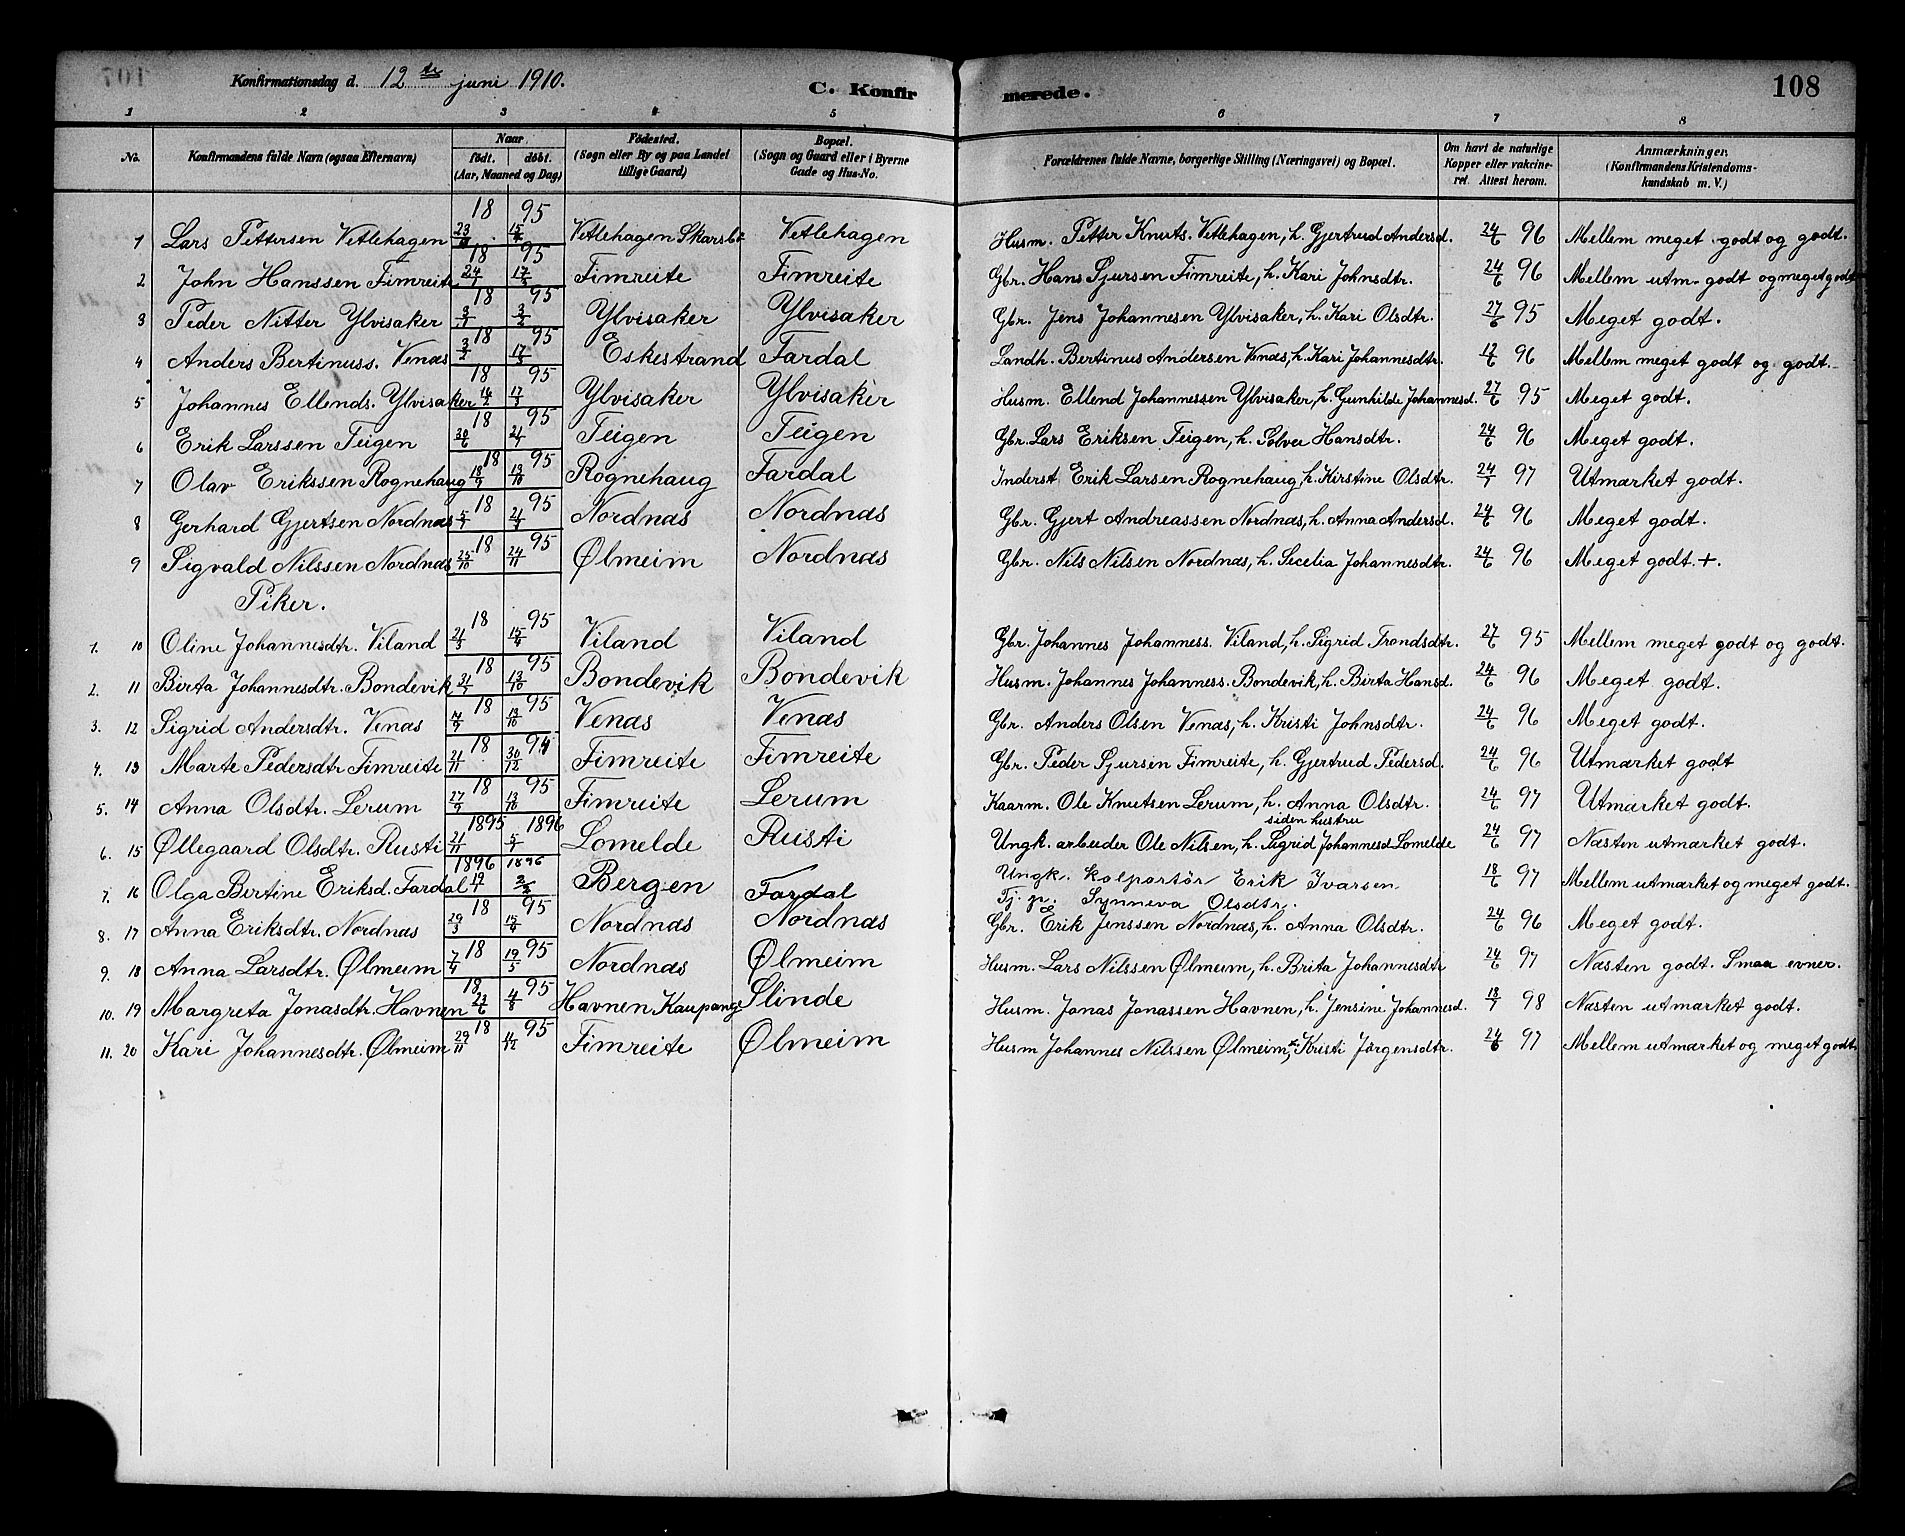 Konfirmationsdag d. 12te juni 1910. C. Konfirmerede. 108
1 2 3 4 5 6 7 8
No. Konfirmandens fulde Navn (ogsaa Efternavn) Naar født. døbt. (Aar, Maaned og Dag) Fødested. (Sogn eller By og paa Landet tillige Gaard) Bopæl. (Sogn og Gaard eller i Byerne Gade og Hus-No. Forældrenes fulde Navne, borgerlige Stilling (Næringsvei) og Bopæl. Om havt de naturlige Kopper eller vakcineret. Attest herom. Anmærkninger. (Konfirmandens Kristendomskundskab m. V.)
1 Lars Pettersen Vetlehagen 18 95 Vetlehagen Skarsbø Vetlehagen Husm. Petter Knuts. Vetlehagen, h. Gjertrud Andersd. 24/6 96 Mellem meget godt og godt.
2 John Hanssen Fimreite 18 95 24/7 17/8 Fimreite Fimreite Gbr. Hans Sjursen Fimreite, h. Kari Johnsdtr. 24/6 96 Mellem utm. godt og meget godt
3 Peder Nitter Ylvisaker 18 95 Ylvisaker Ylvisaker Gbr. Jens Johannesen Ylvisaker, h. Kari Olsdtr. 27/6 95 Meget godt.
4 Anders Bertinuss. Venæs 3/2 18 95 Eskestrand Fardal Landh. Bertinus Andersen Venæs, h. Kari Johannesdtr. 12/6 96 Mellem meget godt og godt.
5 Johannes Ellends. Ylvisaker 18 95 14/2 17/3 Ylvisaker Ylvisaker Husm. Ellend Johannessen Ylvisaker, h. Gunhilde Johannesd. 27/6 95 Meget godt.
6 Erik Larssen Teigen 18 95 30/6 21/7 Teigen Teigen Gbr. Lars Eriksen Teigen, h. Solvei Hansdtr. 24/6 96 Meget godt.
7 Olav Erikssen Rognehaug 18 95 18/9 13/10 Rognehaug Fardal Inderst Erik Larsen Rognehaug, h. Kirstine Olsdtr. 24/7 97 Utmærket godt.
8 Gerhard Gjertsen Nordnæs 18 95 5/7 21/7 Nordnæs Nordnæs Gbr. Gjert Andreassen Nordnæs, h. Anna Andersd. 24/6 96 Meget godt.
9 Sigvald Nilssen Nordnæs 18 95 25/10 24/11 Ølmeim Nordnæs Gbr. Nils Nilsen Nordnæs, h. Secelia Johannesdtr. 24/6 96 Meget godt. +.
Piker.
1. 10 Oline Johannesdtr. Viland 18 95 21/3 15/4 Viland Viland Gbr. Johannes Johanness. Viland, h. Sigrid Trondsdtr. 27/6 95 Mellem meget godt og godt.
2. 11 Birta Johannesdtr. Bondevik 18 95 31/7 13/10 Bondevik Bondevik Husm. Johannes Johanness. Bondevik, h. Birta Hansd. 24/6 96 Meget godt.
3. 12 Sigrid Andersdtr. Venæs 18 95 7/9 13/10 Venæs Venæs Gbr. Anders Olsen Venæs, h. Kristi Johnsdtr. 24/6 96 Meget godt.
4. 13 Marte Pedersdtr Fimreite 18 94 21/11 30/12 Fimreite Fimreite Gbr. Peder Sjursen Fimreite, h. Gjertrud Pedersd. 24/6 96 Utmærket godt
5. 14 Anna Olsdtr. Lerum 18 95 27/9 13/10 Fimreite Lerum Kaarm. Ole Knutsen Lerum, h. Anna Olsdtr. 24/6 97 Utmærket godt.
siden hustru
6. 15 Øllegaard Olsdtr. Rusti 1895 1896 21/11 Lomelde Rusti Ungk. arbeider Ole Nilsen, h. Sigrid Johannesd Lomelde 24/6 97 Næsten utmærket godt.
7. 16 Olga Bertine Eriksd. Fardal 1896 1896 Bergen Fardal Ungk. kolportør Erik Ivarsen 18/6 97 Mellem utmærket og meget godt.
Tj. p. Synneva Olsdtr.
8. 17 Anna Eriksdtr. Nordnæs 18 95 29/3 15/4 Nordnæs Nordnæs Gbr. Erik Jenssen Nordnæs, h. Anna Olsdtr. 24/6 96 Meget godt.
9. 18 Anna Larsdtr. Ølmeim 18 95 7/4 19/5 Nordnæs Ølmeim Husm. Lars Nilssen Ølmeim, h. Brita Johannesdtr 24/6 97 Næsten godt. Smaa evner.
10. 19 Margreta Jonasdtr. Havnen 18 95 23/6 4/8 Havnen Kaupange Slinde Husm. Jonas Jonassen Havnen, h. Jensine Johannesd. 18/7 98 Næsten utmærket godt.
11. 20 Kari Johannesdtr. Ølmeim 18 95 29/11 Fimreite Ølmeim Husm Johannes Nilssen Ølmeim, Kristi Jørgensdtr. 24/6 97 Mellem utmærket og meget godt.